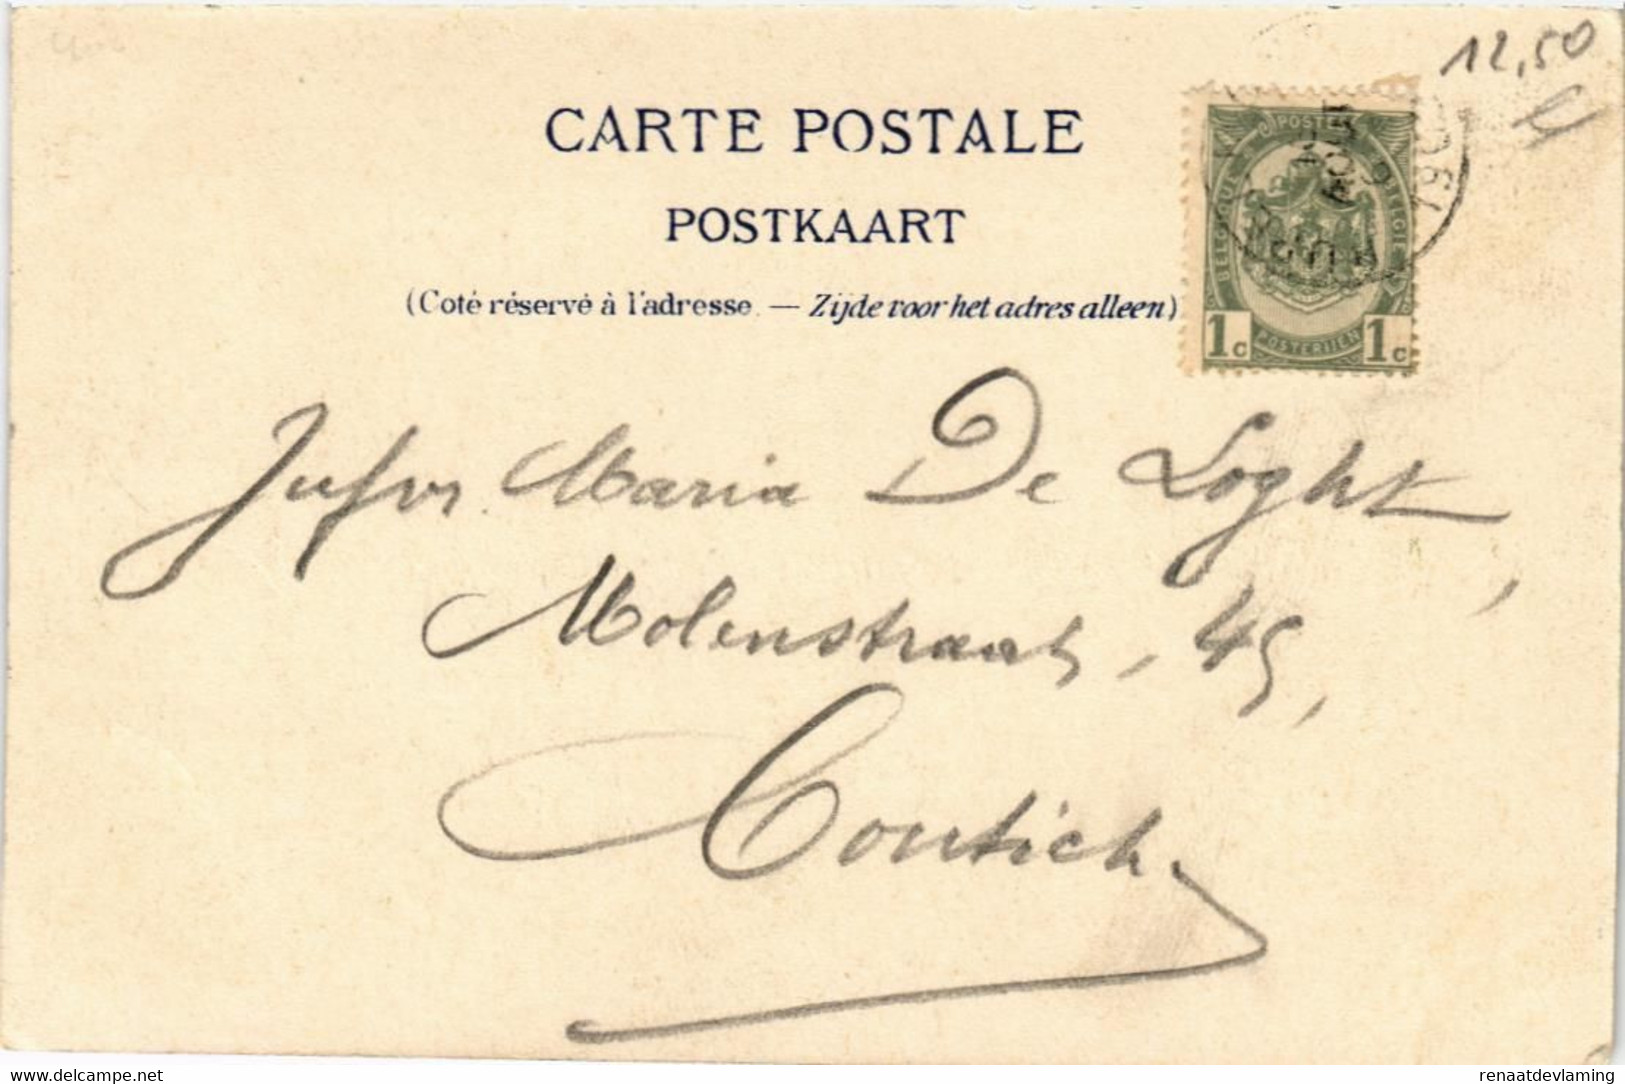 12,50
CARTE POSTALE
POSTKAART
(Coté réservé à l'adresse. — Zijde voor het adres alleen)
POSTES
BELGIQUE BELGIË
POSTERIJEN
1c 1c
Jufvr. Maria De Loght,
Molenstraat, 45,
Contich.
www.delcampe.net
renaatdevlaming